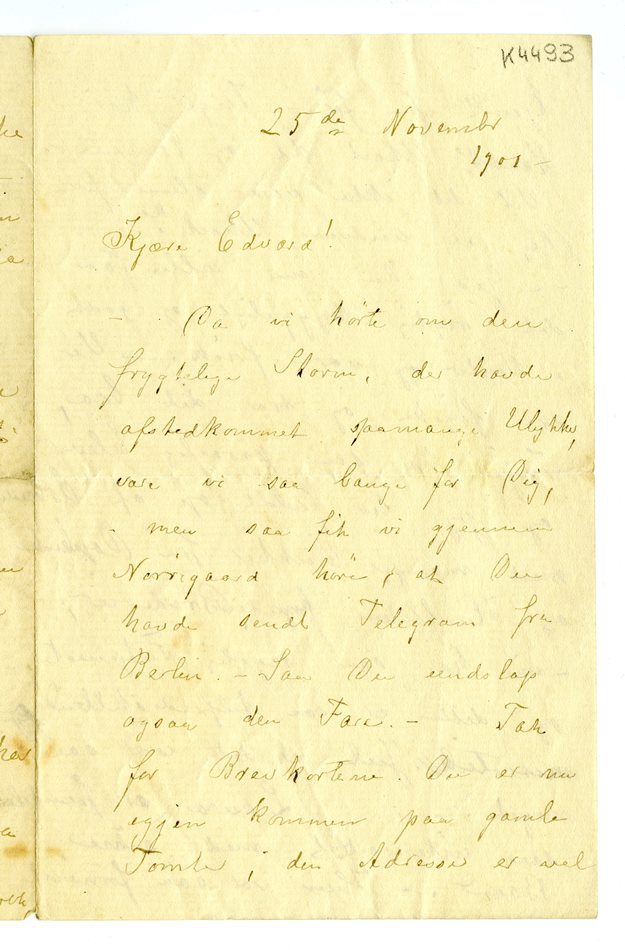 K4493
25de Novembr
1901 –
Kjære Edvard!
– Da vi hørte om den
frygtelige Storm, der havde
afstedkommet saamange Ulykker,
vare vi saa bange for Dig,
– men saa fik vi gjennem
Nørrigaard høre, at Du
havde sendt Telegram fra
Berlin. – Saa Du undslap
ogsaa den Fare. – Tak
for Brevkortene. Du er nu
igjen kommen paa gamle
Tomte; den Adresse er vel